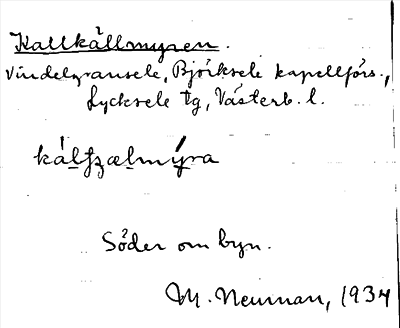 Kallkällmyren.
Vindelgransele, Björksele kapellförs.,
Lycksele tg, Västerb. l.
kálʈʂælmýra
Söder om byn.
M. Neuman, 1934